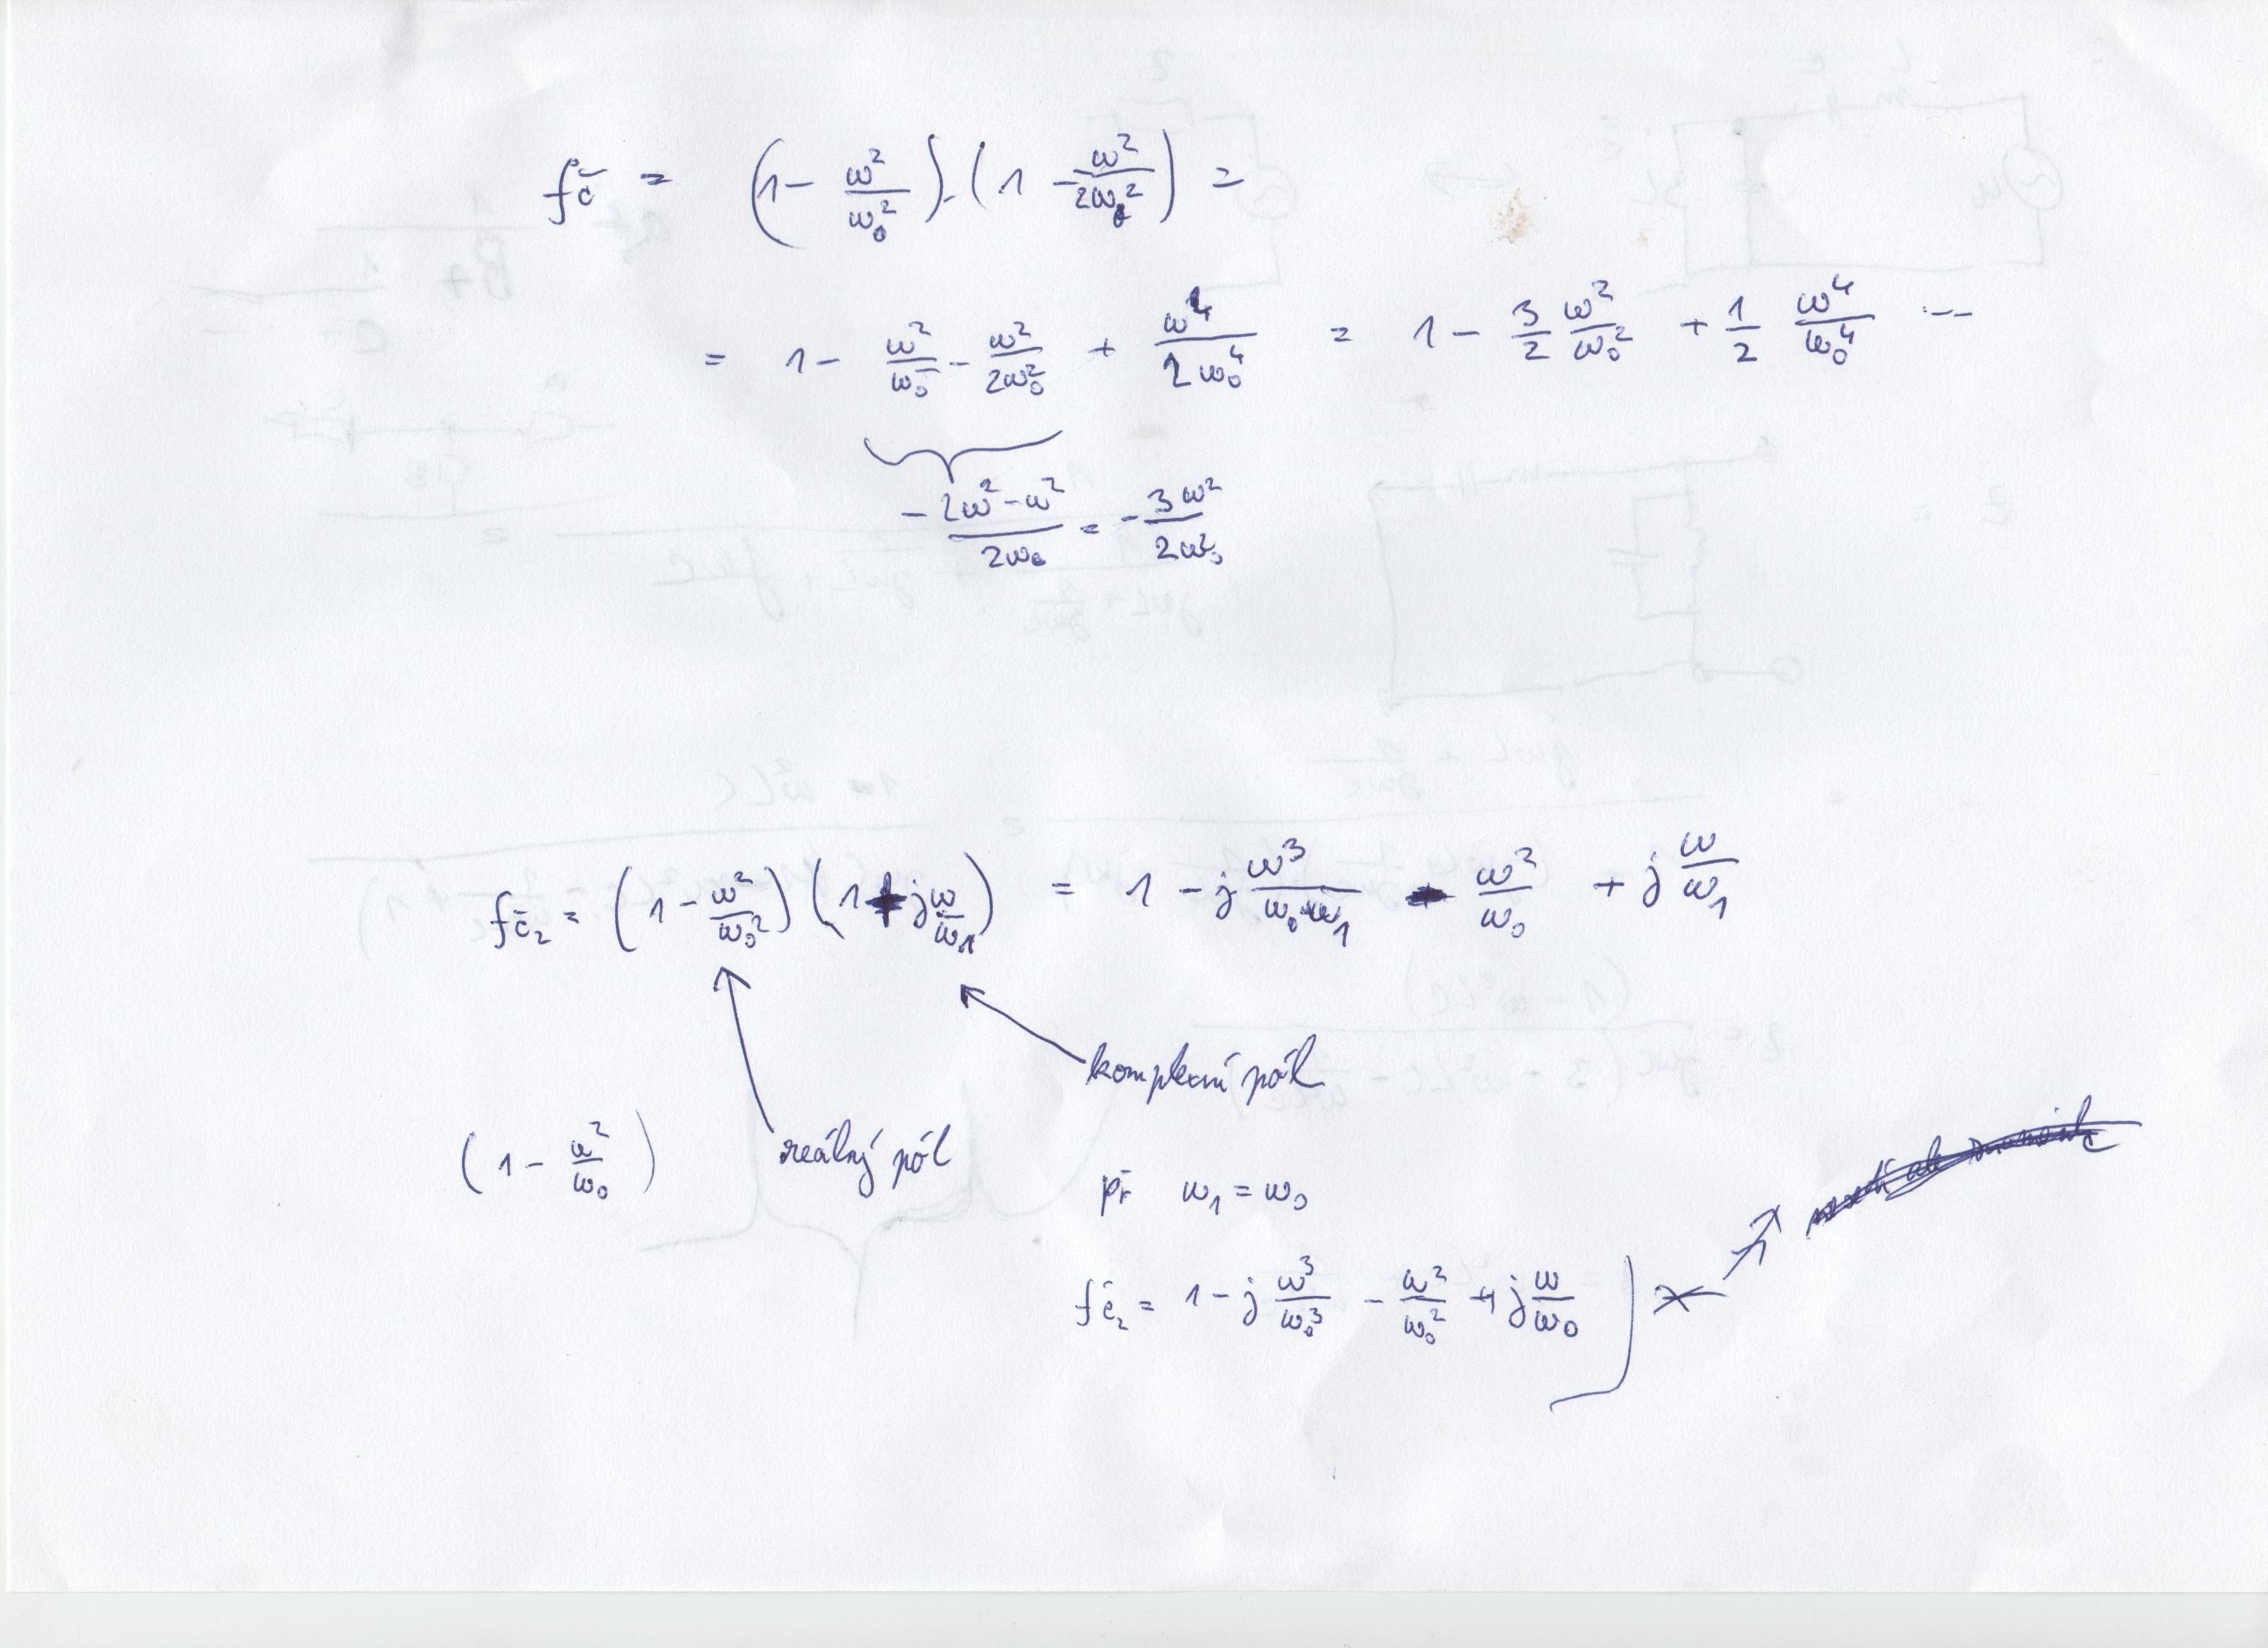 fč = (1 − ω²/ω₀²).(1 − ω²/2ω₀²) =
= 1 − ω²/ω₀² − ω²/2ω₀² + ω⁴/2ω₀⁴ = 1 − 3/2 ω²/ω₀² + 1/2 ω⁴/ω₀⁴ ---
−2ω² − ω²/2ω₀ = −3ω²/2ω₀²
fč₂ = (1 − ω²/ω₀²)(1 + jω/ω₁) = 1 − j ω³/ω₀·ω₁ − ω²/ω₀ + j ω/ω₁
komplexní pól
(1 − ω²/ω₀) reálný pól
př ω₁ = ω₀
fč₂ = 1 − j ω³/ω₀³ − ω²/ω₀² + j ω/ω₀